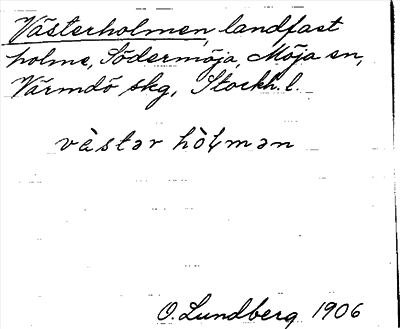 Västerholmen, landfast
holme, Södermöja, Möja sn,
Värmdö skg, Stockh. l.
vàstər hòļmən
O. Lundberg 1906